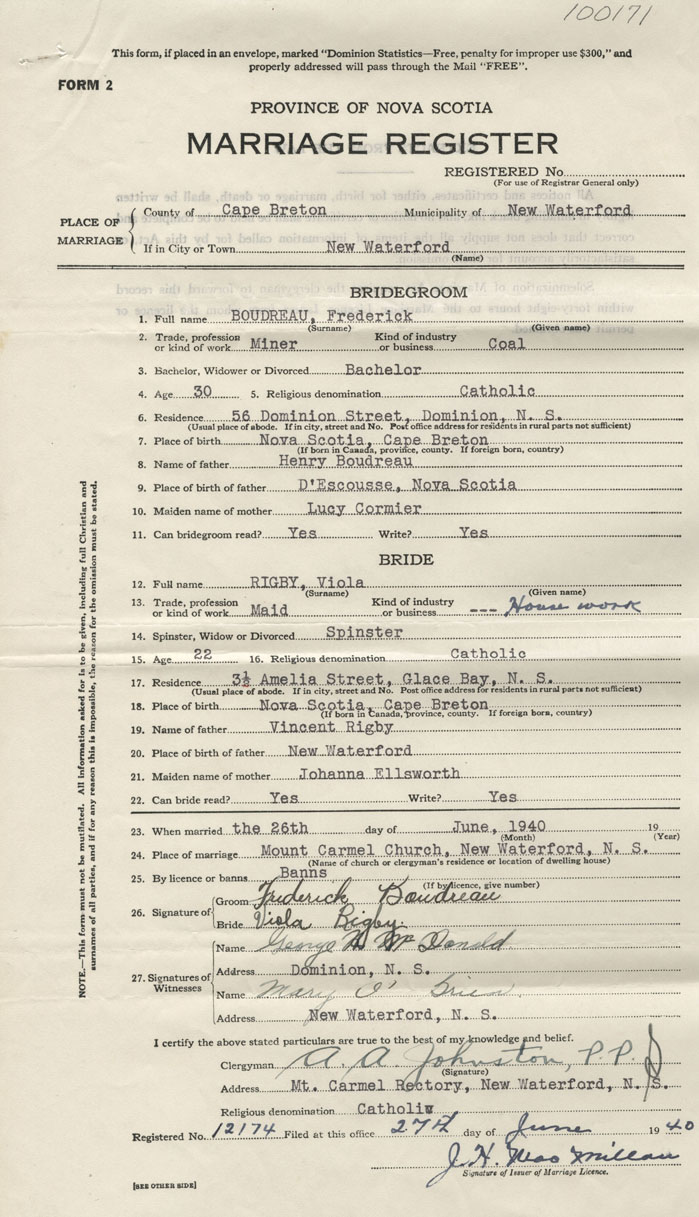 100171
This form, if placed in an envelope, marked "Dominion Statistics—Free, penalty for improper use $300," and
properly addressed will pass through the Mail "FREE".
FORM 2
PROVINCE OF NOVA SCOTIA
MARRIAGE REGISTER
REGISTERED No
(For use of Registrar General only)
PLACE OF MARRIAGE
County of Cape Breton Municipality of New Waterford
If in City or Town New Waterford
(Name)
BRIDEGROOM
1. Full name BOUDREAU, Frederick
(Surname) (Given name)
2. Trade, profession or kind of work Miner Kind of industry or business Coal
3. Bachelor, Widower or Divorced Bachelor
4. Age 30 5. Religious denomination Catholic
6. Residence 56 Dominion Street, Dominion, N. S.
(Usual place of abode. If in city, street and No. Post office address for residents in rural parts not sufficient)
7. Place of birth Nova Scotia, Cape Breton
(If born in Canada, province, county. If foreign born, country)
8. Name of father Henry Boudreau
9. Place of birth of father D'Escousse, Nova Scotia
10. Maiden name of mother Lucy Cormier
11. Can bridegroom read? Yes Write? Yes
BRIDE
12. Full name RIGBY, Viola
(Surname) (Given name)
13. Trade, profession or kind of work Maid Kind of industry or business --- House work
14. Spinster, Widow or Divorced Spinster
15. Age 22 16. Religious denomination Catholic
17. Residence 3½ Amelia Street, Glace Bay, N. S.
(Usual place of abode. If in city, street and No. Post office address for residents in rural parts not sufficient)
18. Place of birth Nova Scotia, Cape Breton
(If born in Canada, province, county. If foreign born, country)
19. Name of father Vincent Rigby
20. Place of birth of father New Waterford
21. Maiden name of mother Johanna Ellsworth
22. Can bride read? Yes Write? Yes
23. When married the 26th day of June, 1940 19
(Month) (Year)
24. Place of marriage Mount Carmel Church, New Waterford, N. S.
(Name of church or clergyman's residence or location of dwelling house)
25. By licence or banns Banns
(If by licence, give number)
26. Signature of
Groom Frederick Boudreau
Bride Viola Rigby.
27. Signatures of Witnesses
Name George Mc Donald
Address Dominion, N. S.
Name Mary O' Brien
Address New Waterford, N. S.
I certify the above stated particulars are true to the best of my knowledge and belief.
Clergyman A. A. Johnston, P.P.
(Signature)
Address Mt. Carmel Rectory, New Waterford, N. S.
Religious denomination Catholiv
Registered No. 12174 Filed at this office 27th day of June 19 40
J. H. MacMillan
Signature of Issuer of Marriage Licence.
[SEE OTHER SIDE]
NOTE.—This form must not be mutilated. All information asked for is to be given, including full Christian and
surnames of all parties, and if for any reason this is impossible, the reason for the omission must be stated.